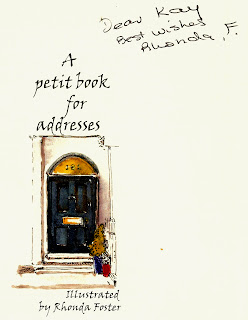 Dear Kay
Best wishes
Rhonda, F.
A
petit book
for
addresses
Illustrated
by Rhonda Foster